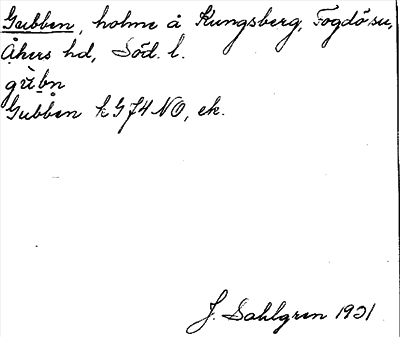 Gubben, holme å Kungsberg, Fogdö sn,
Åkers hd, Söd. l.
Gubben k G 74 NO, ek.
J. Sahlgren 1921